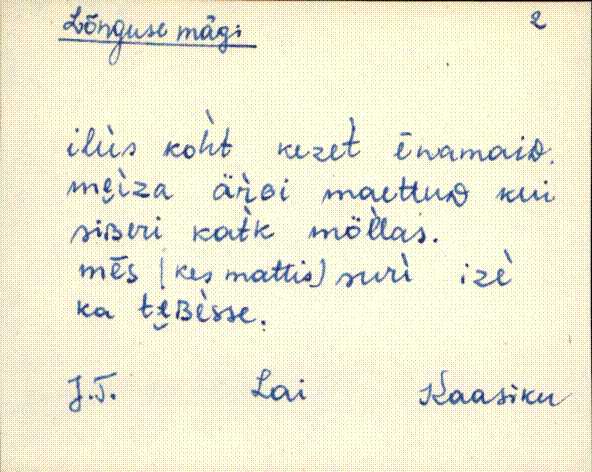 Lõnguse mägi 2
ilùs koh̀t kezet̀ ēnamaiᴅ.
mẹìza äŕ̀oi maettuᴅ kui
siʙeri kat̀k möl̀las.
mēs (kes mattis) surì izè
ka tẹʙèsse.
J.T. Lai Kaasiku